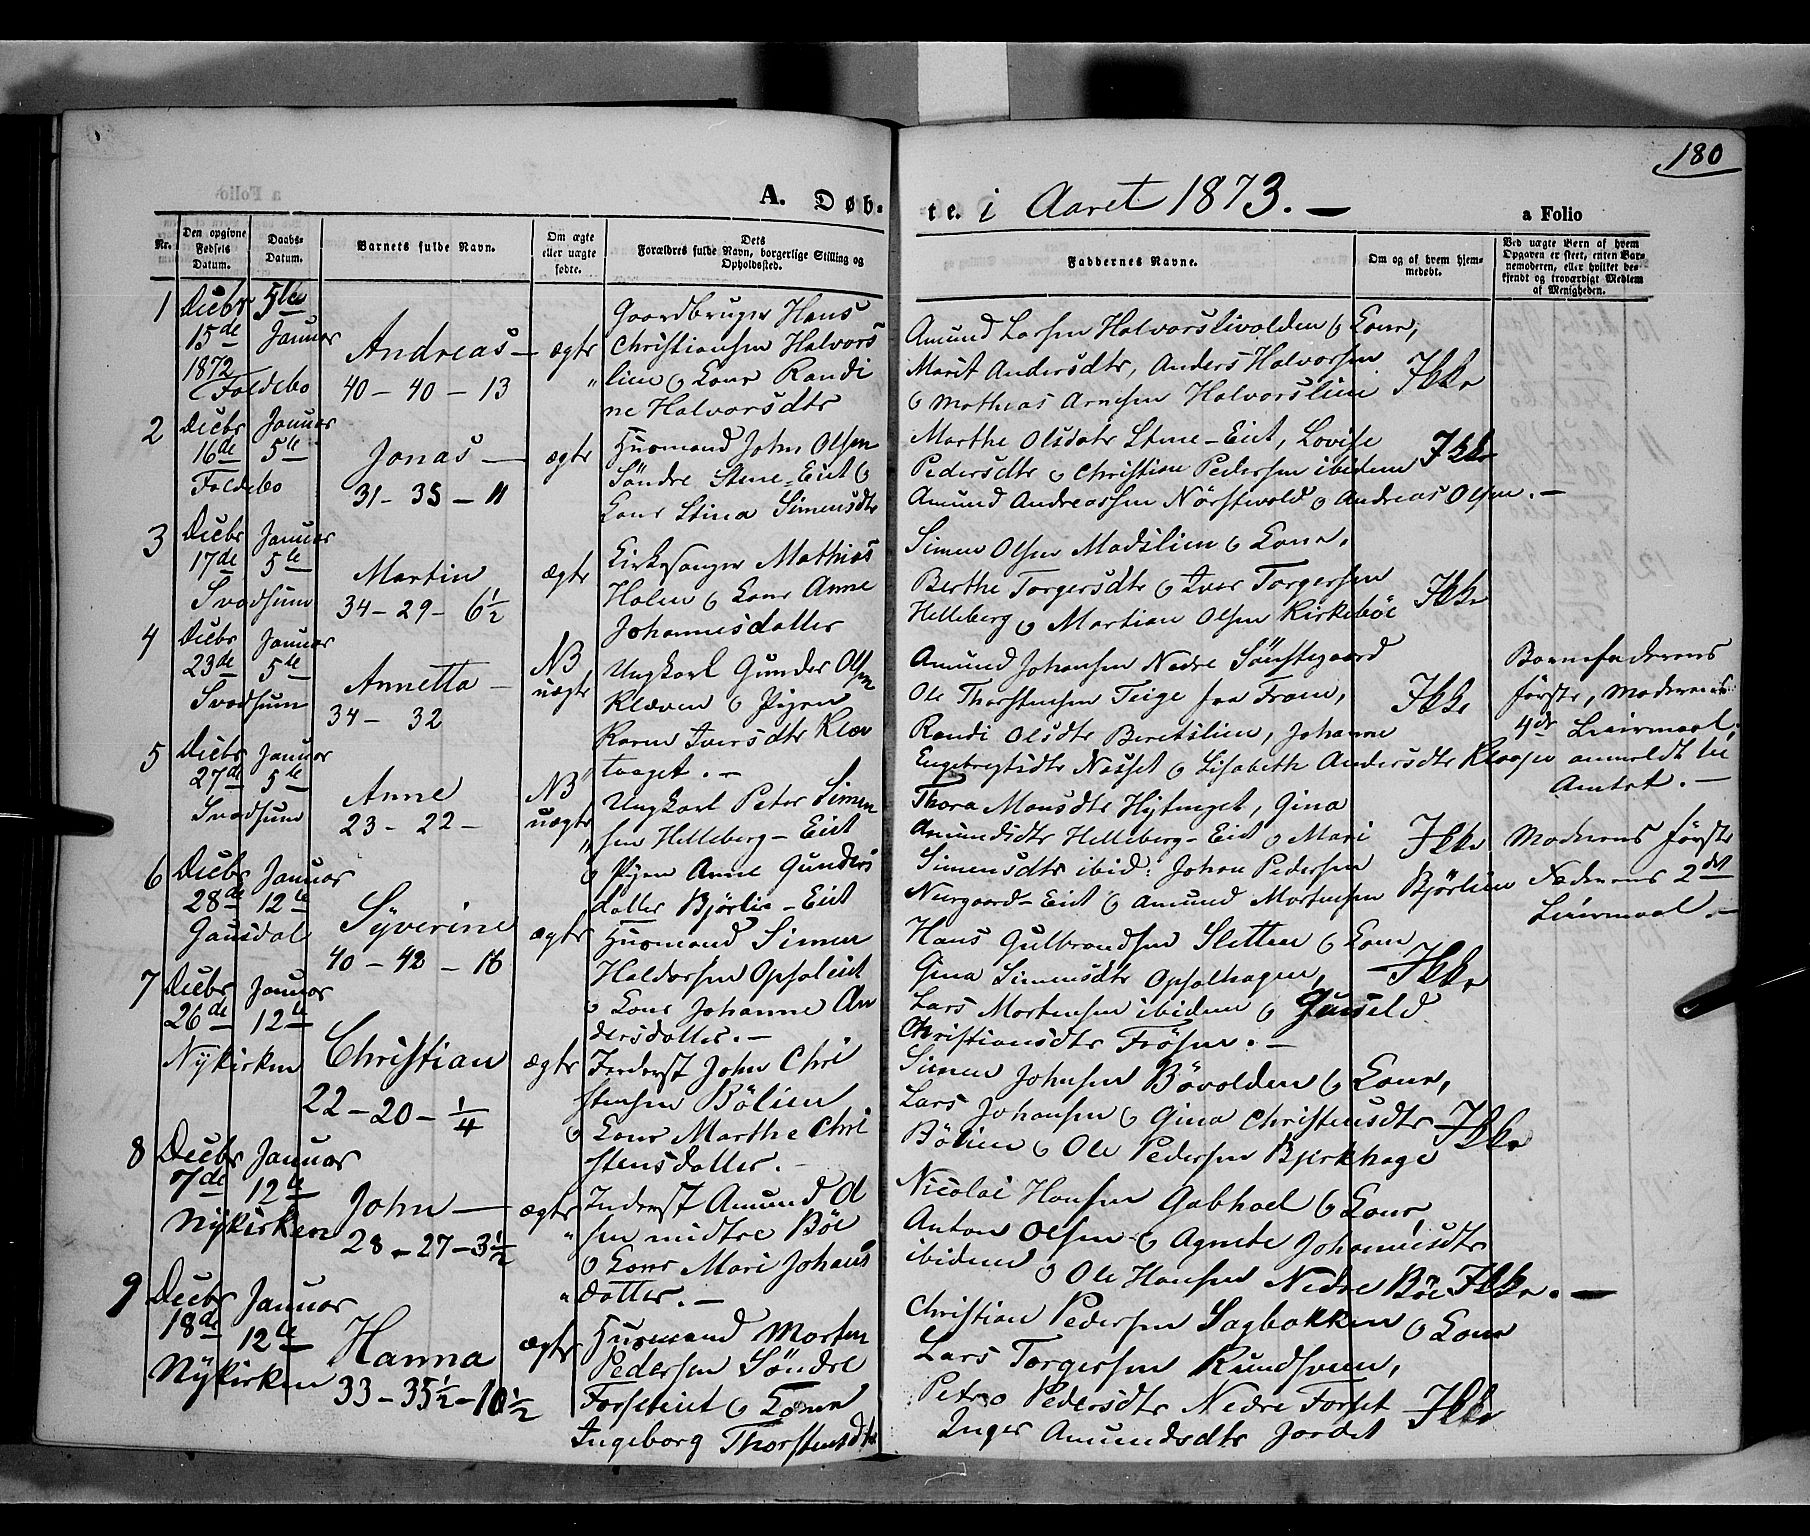 180
A. Døb-
te. i Aaret 1873. —
a Folio
Nr.
Den opgivne Fødsels Datum.
Daabs-Datum.
Barnets fulde Navn.
Om ægte eller uægte fødte.
Dets Forældres fulde Navn, borgerlige Stilling og Opholdssted.
Faddernes Navne.
Om og af hvem hjemmedøbt.
Ved uægte Børn af hvem Opgaven er skeet, enten Barnemoderen, eller hvilket bekjendt og troværdigt Medlem af Menigheden.
1
Decbr 5te
15de Januar
1872
Foldebo
Andreas —
40 – 40 – 13
ægte
Gaardbruger Hans
Christiansen Halvors
lien o Kone Randi
ne Halvorsdtr
Amund Larsen Halvorslivolden o Kone,
Marit Andersdtr, Anders Halvorsen
o Mathias Arnesen Halvorslien
Ikke
2
Decbr Januar
16de 5te
Foldebo
Jonas —
31 – 35 – 11
ægte
Husmand John Olsen
Söndre Stene-Eiet o
Kone Stina Simensdtr
Marthe Olsdatr Stene-Eiet, Lovise
Pedersdtr o Christian Pedersen ibidem
Amund Andreassen Nörstevold o Andreas Olsen. —
Ikke
3
Decbr Januar
17de 5te
Svadsum
Martin
34 – 29 – 6½
ægte
Kirkesanger Mathias
Holen o Kone Anne
Johannesdatter
Simen Olsen Madslien o Kone,
Berthe Torgersdtr o Iver Torgersen
Helleberg o Martian Olsen Kirkeböe
Ikke
4
Decbr Januar
23de 5te
Svadsum
Annetta —
34 – 32
NB
uægte
Ungkarl Gunder Olsen
Kleven o Pigen
Karen Iversdtr Klev
taaget. —
Amund Johansen Nedre Sönstegaard
Ole Thorstensen Teige fra Fron,
Randi Olsdtr Beretslien, Johanne
Engebregtsdtr Nasset o Lisabeth Andersdtr
Ikke
Barnefaderens
förste, Moderens
4de Leiermaal.
anmeldt til
Amtet. —
5
Decbr Januar
27de 5te
Svadsum
Anne
23 – 22 –
NB
uægte
Ungkarl Peter Simen
sen Helleberg-Eiet
o Pigen Anne Gunders
datter Björlie-Eiet
Thora Monsdtr Hytunget, Gina
Amundsdtr Helleberg-Eiet o Mari
Simensdtr ibid: Johan Pedersen
Neergaard-Eiet o Amund Mortensen Björlien
Ikke
Moderens förste
Faderens 2det
Leiermaal. —
6
Decbr Januar
28de 12te
Gausdal
Syverine
40 – 42 – 16
ægte
Husmand Simen
Haldorsen Opsaleiet
o Kone Johanne An
dersdatter. —
Hans Gulbrandsen Sletten o Kone
Gina Simensdtr Opsalhagen,
Lars Mortensen ibidem o
Christiansdtr Frösen. —
Ikke
7
Decbr Januar
26de 12te
Nykirken
Christian
22 – 20 – ¼
ægte
Inderst John Chri
stensen Bölien
o Kone Marthe Chri
stensdatter. —
Simen Johnsen Bövolden o Kone,
Lars Johansen o Gina Christensdtr
Bölien o Ole Pedersen Bjerkhage
Ikke
8
Decbr Januar
7de 12te
Nykirken
John —
28 – 27 – 3½
ægte
Inderst Amund Ol
sen midtre Böe
o Kone Mari Johans
datter. —
Nicolai Hansen Gabhoel o Kone,
Anton Olsen o Agnete Johannesdtr
ibidem
o Ole Hansen Nedre Böe Ikke. —
9
Decbr Januar
18de 12te
Nykirken
Hanna
33 – 35½ – 10½
ægte
Husmand Morten
Pedersen Söndre
Forseteiet o Kone
Ingeborg Thorstensdtr
Christian Pedersen Sagbakken o Kone
Lars Torgersen Rundsveen,
Petra Pedersdtr Nedre Forset
Inger Amundsdtr Jordet
Ikke